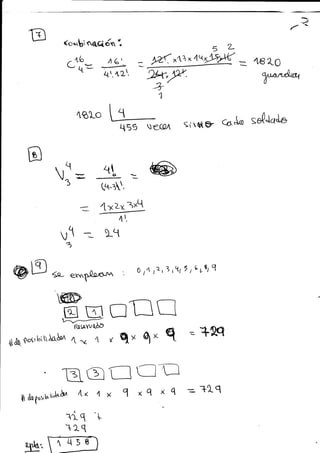 7 combinación :
C 16 4 = 16! / 4!.12! = 12!.x13x14x15x16 / 24.12! = 1820
5 2
guardias
7
1
1820 4
455 veces sirve cada soldado
8
V 4 3 = 4! / (4-3)! =
= 1x2x3x4 / 1!
V 4 3 = 24
9 se emplean : 0,1,2,3,4,5,6,8,9
2 1
reservado
# de posibilidades 1 x 1 x 9 x 9 x 9 = 729
3 3
# de posibilidades 1 x 1 x 9 x 9 x 9 = 729
729 +
729
1 4 5 8